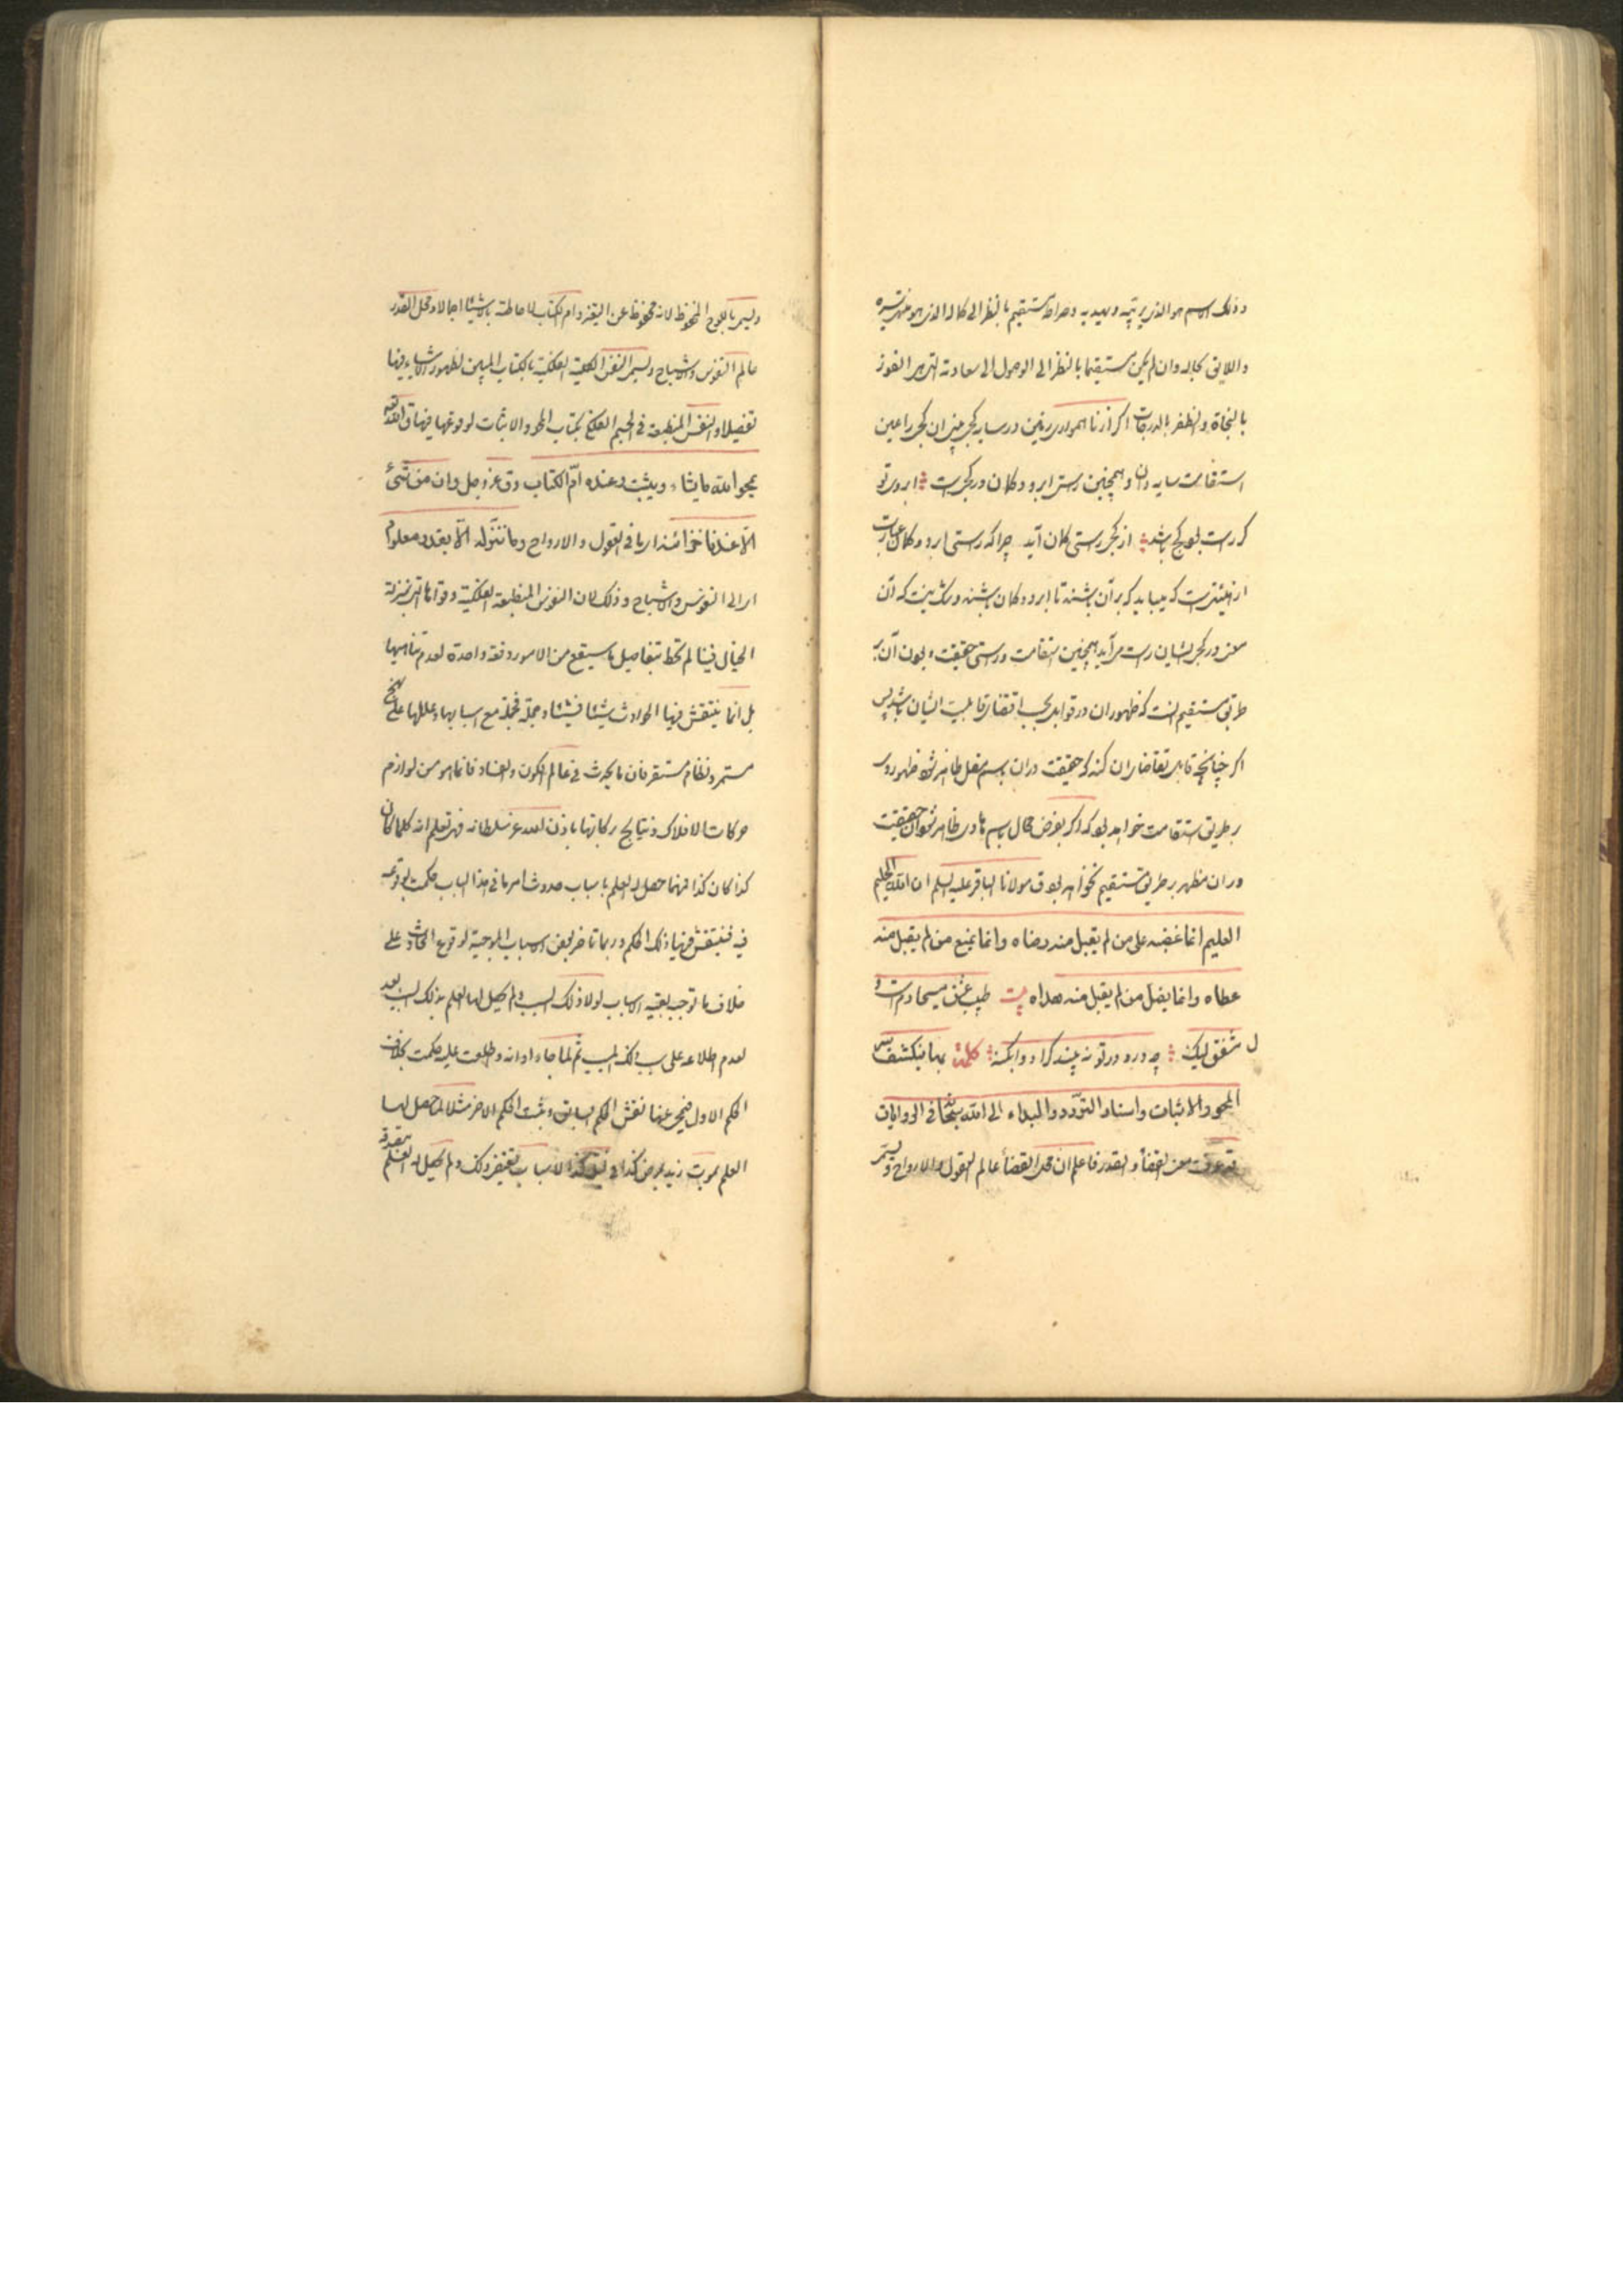 وذلک الاسم هو الذی یربّیه ویهدیه وصراطه مستقیم بالنظر الی کماله الذی هو منتهی سیره
واللایق بحاله وان لم یکن مستقیما بالنظر الی الوصول الی سعادته التی هی الفوز
بالنجاة والظفر بالدرجات اکر از ناهمواری زمین در سایه کجی بینی ان کجی را عین
استقامت سایه دان وهمچنین راستی ابرو وکمان در کجی است ابروی تو
کر راست بود کج باشد از کجی راستی کمان آید چرا که راستی ابرو وکمان عبارت
از هیئتی است که میباید که بر آن باشند تا ابرو وکمان باشند وشک نیست که آن
معنی در کجی ایشان راست می آید همچنین استقامت وراستی حقیقت بودن آن بر
طریق مستقیم است که ظهور ان در قوابل بحسب اقتضاء قابلیت ایشان باشد پس
اکر چنانچه قابلی تقاضای ان کند که حقیقت در ان باسم مضل ظاهر شود ظهور وی
بر طریق استقامت خواهد بود که اکر بفرض محال باسم هادی ظاهر شود آن حقیقت
در ان مظهر بر طریق مستقیم نخواهد بود ق مولانا الباقر علیه السلم ان الله الحلیم
العلیم انما غضبه علی من لم یقبل منه رضاه وانما یمنع من لم یقبل منه
عطاه وانما یضل من لم یقبل منه هداه بیت طبیب عشق مسیحا دم است و
مشفق لیک چه درد در تو نه بیند کرا دوا بکند کلمة بها ینکشف سر
المحو والاثبات واسناد التردد والبداء الی الله سبحانه فی الروایات
قد عرفت معنی القضأ والقدر فاعلم ان محل القضأ عالم العقول والارواح و
ویسمی باللوح المحفوظ لانه محفوظ عن التغیر وام الکتاب لاحاطته بالاشیاء اجمالا ومحل القدر
عالم النفوس والاشباح ویسمی النفس الکلیة الفلکیة بالکتاب المبین لظهور الاشیاء فیها
تفصیلا والنفس المنطبعة فی الجسم الفلکی بکتاب المحو والاثبات لوقوعها فیها ق الله تعه
یمحوا الله ما یشاء ویثبت وعنده امّ الکتاب وق عز وجل وان من شیئ
الّا عندنا خزائنه ای ما فی العقول والارواح وما ننزّله الّا بقدر معلوم
ای الی النفوس والاشباح وذلک لان النفوس المنطبعة الفلکیة وقواها التی بمنزلة
الخیال فینا لم تحط بتفاصیل ما سیقع من الامور دفعة واحدة لعدم تناهیها
بل انما ینتقش فیها الحوادث شیئا فشیئا وجملة فجملة مع اسبابها وعللها علی نهج
مستمر ونظام مستقر فان ما یحدث فی عالم الکون والفساد فانما هو من لوازم
حرکات الافلاک ونتایج برکاتها باذن الله عز سلطانه فهی تعلم انه کلما کان
کذا کان کذا فمهما حصل لها العلم باسباب حدوث امر ما فی هذا الباب حکمت بوقوعه
فیه فینتقش فیها ذلک الحکم وربما تاخر بعض الاسباب الموجبة لوقوع الحادث علی
خلاف ما توجبه بقیة الاسباب لولا ذلک السبب ولم یحصل لها العلم بذلک السبب بعد
لعدم اطلاعه علی سبب ذلک السبب ثم لما جاء اوانه واطلعت علیه حکمت بخلاف
الحکم الاول فیمحی عنها نقش الحکم السابق ویثبت الحکم الاخر مثلا لما حصل لها
العلم بموت زید بمرض کذا فی لیلة کذا لاسباب تقتضی ذلک ولم یحصل لها العلم بتصدقه